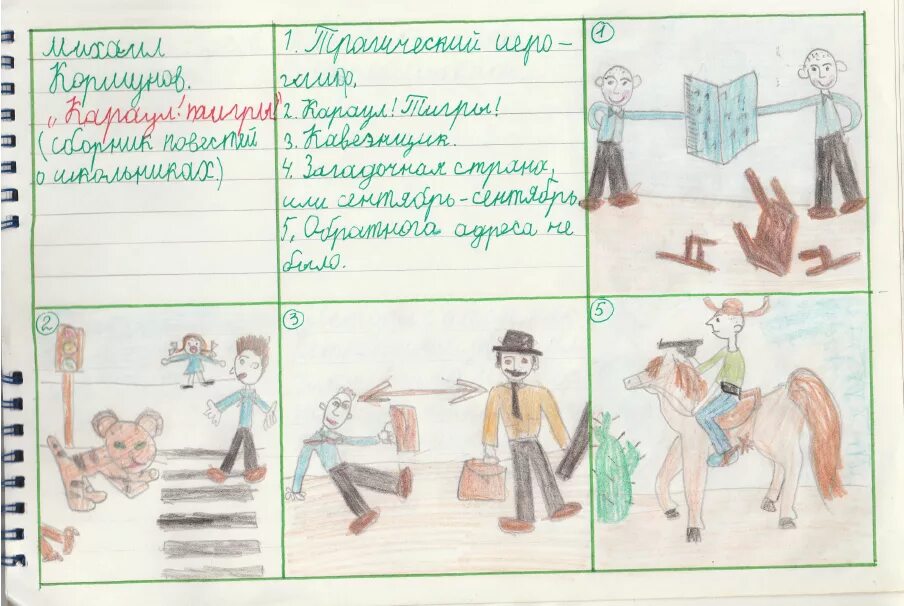 Михаил
Коршунов.
„Караул! тигры!"
(сборник повестей
о школьниках)
1. Трагический иеро-
глиф.
2. Караул! Тигры!
3. Кавеэнщик.
4. Загадочная страна,
или сентябрь-сентябрь.
5. Обратного адреса не
было.
1
2
3
5